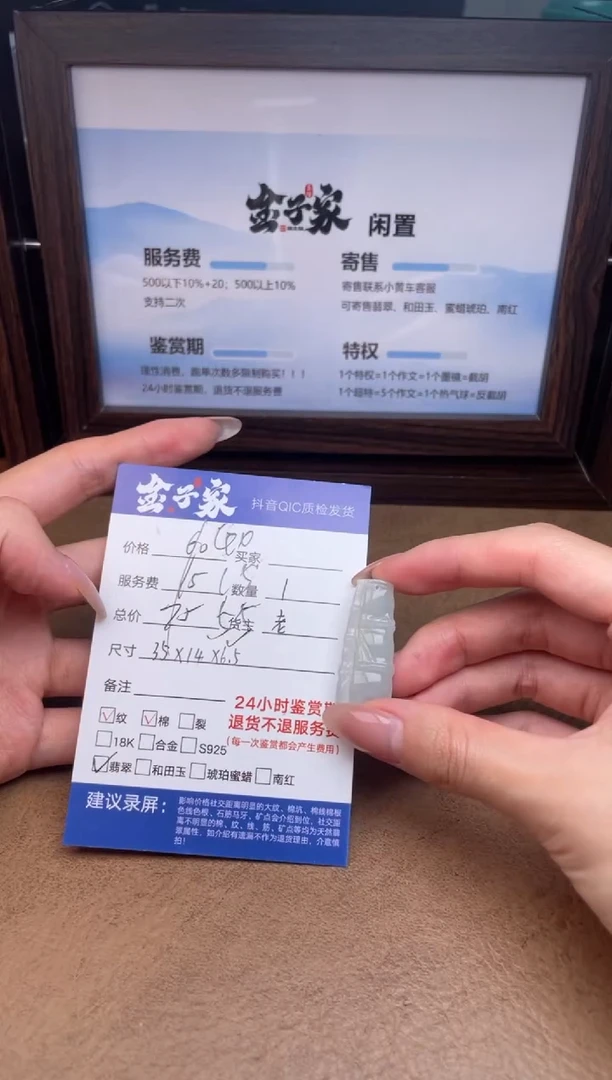 金子家 闲置
服务费
500以下10%+20；500以上10%
支持二次
寄售
寄售联系小黄车客服
可寄售翡翠、和田玉、蜜蜡琥珀、南红
鉴赏期
理性消费，跑单次数多限制购买！！！
24小时鉴赏期，退货不退服务费
特权
1个特权=1个作文=1个墨镜=截胡
1个超特=5个作文=1个热气球=反截胡
金子家 抖音QIC质检发货
价格 60 买家
服务费 15 数量 1
总价 75 货主
尺寸 35×14×6.5
备注
24小时鉴赏期
退货不退服务费
(每一次鉴赏都会产生费用)
纹 棉 裂
18K 合金 S925
翡翠 和田玉 琥珀蜜蜡 南红
建议录屏：
影响价格社交距离明显的大纹、棉坑、棉线棉根
色线色根、石筋马牙，矿点会介绍到位，社交距
离不明显的棉、纹、线、筋、矿点等均为天然翡
翠属性，如介绍有遗漏不作为退货理由，介意慎
拍！